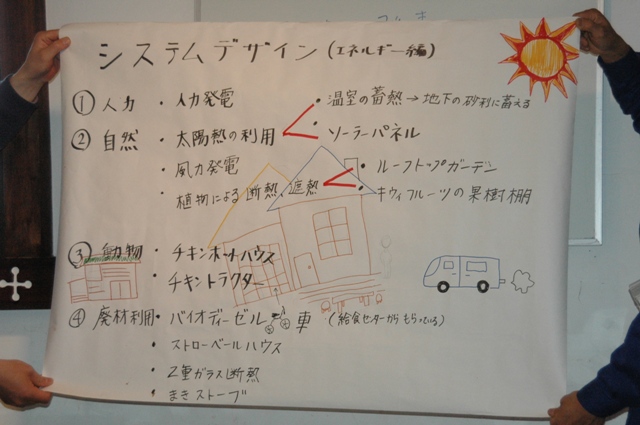 システムデザイン(エネルギー編)
① 人力 ・人力発電
・温室の蓄熱→地下の砂利に蓄える
② 自然 ・太陽熱の利用
・ソーラーパネル
・風力発電
・ルーフトップガーデン
・植物による断熱、遮熱
・キウィフルーツの果樹棚
③ 動物 ・チキンホットハウス
・チキントラクター
④ 廃材利用・バイオディーゼル車 (給食センターからもらっている)
・ストローベールハウス
・2重ガラス断熱
・まきストーブ